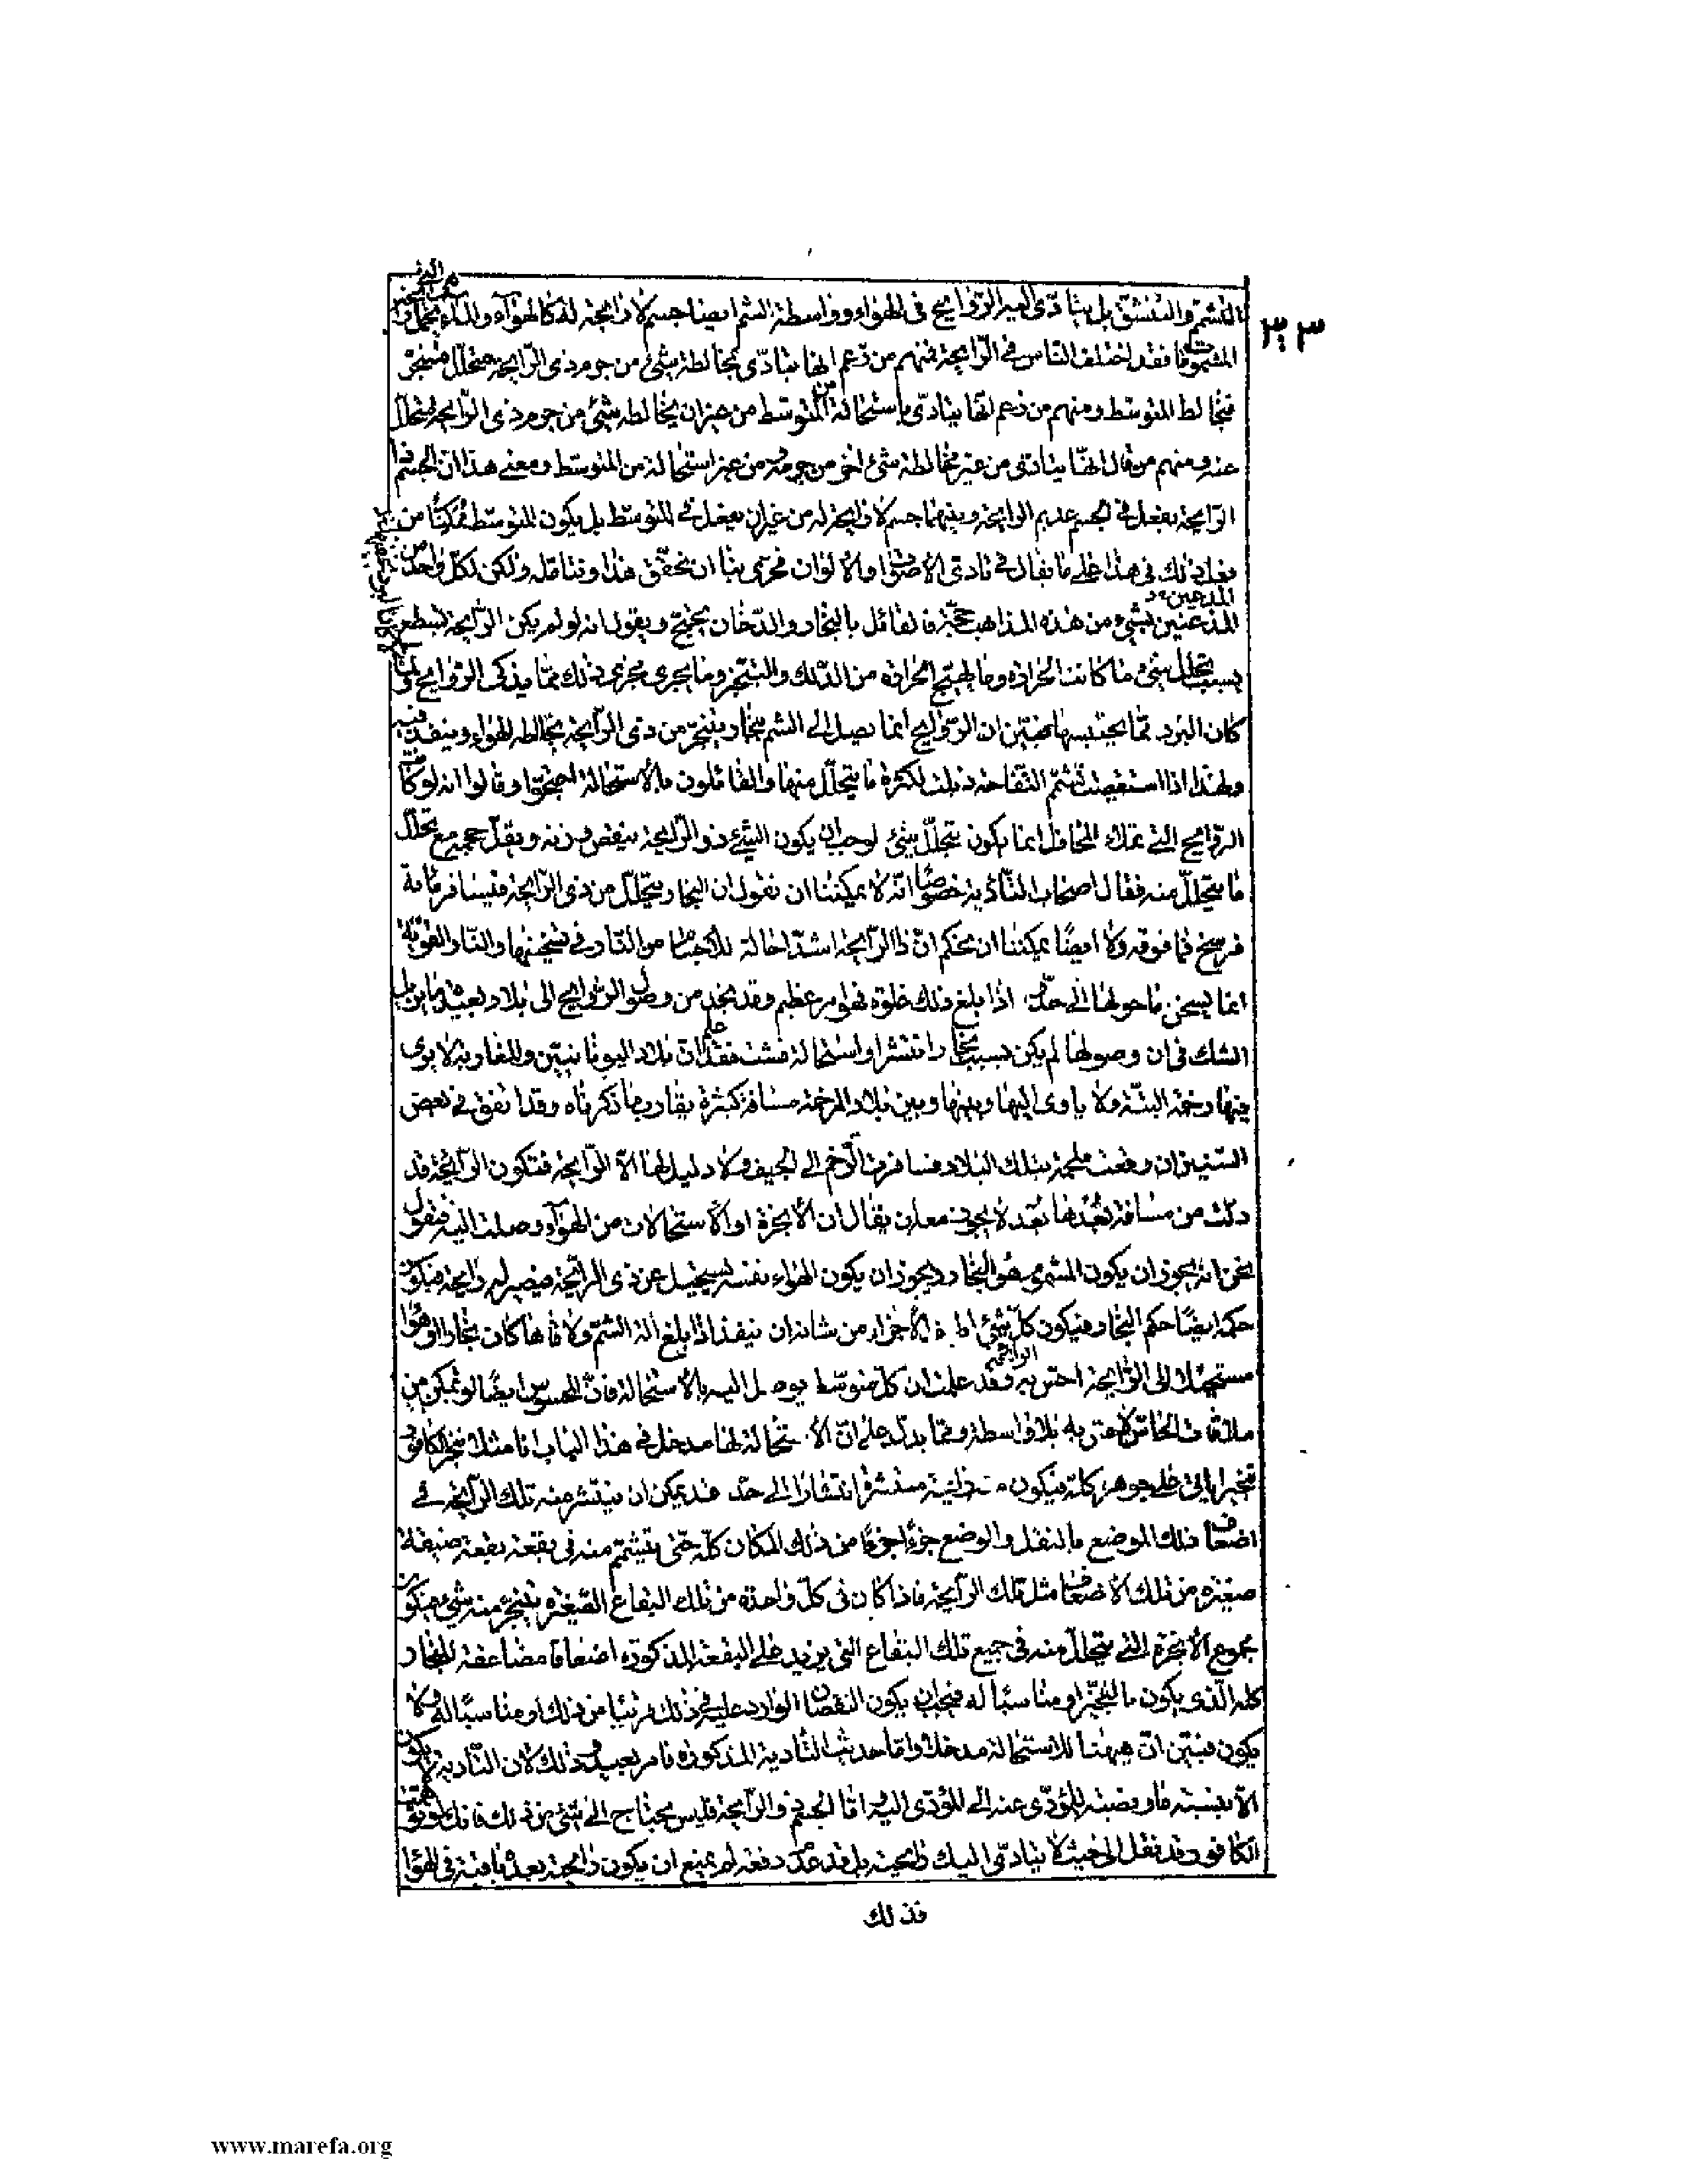 ٣٣٣
التشمم والتنشق بل يتأدى اليه الروايح فى الهواء وواسطة الشم ايضا جسم لا رايحة له كالهواء والماء
المشمومات فقد اختلف الناس فى الرايحة فمنهم من زعم انها تتأدى بمخالطة شئ من جرم ذى الرايحة متحلل متبخر
فيخالط المتوسط ومنهم من زعم انها يتأدى باستحالة من المتوسط من غير ان يخالطه شئ من جرم ذى الرايحة متحلل
عنه ومنهم من قال انها يتأدى من غير مخالطة شئ اخر من جرمه ومن غير استحالة من المتوسط ومعنى هذا ان الجسم ذا
الرايحة يفعل فى الجسم عديم الرايحة وبينهما جسم لا رايحة له من غير ان يفعل فى المتوسط بل يكون المتوسط ممكنا من
فعل ذلك فى هذا على ما يقال فى تادى الاصوات والالوان فحرى بنا ان نحقق هذا ونتامله ولكن لكل واحد من
المذعنين بشئ من هذه المذاهب حجة فالقائل بالبخار والدخان يحتج ويقول انه لو لم يكن الرايحة تسطع
بسبب تحلل شئ ما كانت الحرارة وما يهيج الحرارة من الدلك والتبخر وما يجرى مجرى ذلك مما يذكى الروايح ولما
كان البرد مما يحبسها فبين ان الروايح انما يصل الى الشم ببخار يتبخر من ذى الرايحة يخالط الهواء وينفذ فيه
ولهذا اذا استقصيت تشمم التفاحة ذبلت لكثرة ما يتحلل منها والقائلون بالاستحالة احتجوا وقالوا انه لو كانت
الروايح التى تملأ المحافل انما يكون بتحلل شئ لوجب ان يكون الشئ ذو الرايحة ينقص وزنه ويقل حجمه مع تحلل
ما يتحلل منه فقال اصحاب التأدية خصوصا انه لا يمكننا ان نقول ان البخار يتحلل من ذى الرايحة فيسافر مائة
فرسخ فما فوقه ولا ايضا يمكننا ان نحكم ان ذا الرايحة اشد احالة للاجسام من النار فى تسخينها والنار القوية
انما يسخن ما حولها الى حد اذا بلغ ذلك غلوة فهو امر عظيم وقد نجد من وصول الروايح الى بلاد بعيدة ما يزيل
الشك فى ان وصولها لم يكن بسبب بخار انتشر او استحالة فشت فقد علم ان بلاد اليونانيين والمغاربة لا يرى
فيها رخمة البتة ولا ياوى اليها وبينها وبين بلاد المرخمة مسافة كثيرة يقارب ما ذكرناه وقد اتفق فى بعض
السنين ان وقعت ملحمة بتلك البلاد فسافرت الرخم الى الجيف ولا دليل لها الا الرايحة فتكون الرايحة قد
دلت من مسافة بعدها بعد لا يجوز معه ان يقال ان الابخرة او الاستحالات من الهواء وصلت اليه فنقول
نحن انه يجوز ان يكون المشموم هو البخار ويجوز ان يكون الهواء نفسه يستحيل عن ذى الرايحة فيصير له رايحة فيكون
حكمه ايضا حكم البخار فيكون كل شئ لطيف الاجزاء من شانه ان ينفذ اذا بلغ الة الشم ولاقاها كان بخارا او هواء
مستحيلا الى الرايحة احس به وقد علمت ان كل متوسط يوصل اليه بالاستحالة فان المحسوس ايضا لو تمكن من
ملاقات الحاس لاحس به بلا واسطة ومما يدل على ان الاستحالة لها مدخل فى هذا الباب انا مثلا نبخر الكافور
تبخيرا ياتى على جوهره كله فيكون منه رايحة منتشرة انتشارا الى حد قد يمكن ان ينتشر منه تلك الرايحة فى
اضعاف ذلك الموضع بالنقل والوضع جزءا جزءا من ذلك المكان كله حتى يتشمم منه فى بقعة بقعة ضيقة
صغيرة من تلك الاضعاف مثل تلك الرايحة فاذا كان فى كل واحدة من تلك البقاع الصغيرة يتبخر منه شئ فيكون
مجموع الابخرة التى يتحلل منه فى جميع تلك البقاع التى يزيد على البقعة المذكورة اضعافا مضاعفة للبخار
كله الذى يكون بالتبخير او مناسبا له فيجب ان يكون النقصان الوارد عليه فى ذلك قريبا من ذلك او مناسبا له ولا
يكون فبين ان هيهنا للاستحالة مدخلا واما حديث التأدية المذكورة فامر بعيد وذلك لان التأدية لا يكون
الا بنسبة ما ونصبة للمؤدى عنه الى المؤدى اليه واما الجسم ذو الرايحة فليس يحتاج الى شئ من ذلك فانك لو توهمت
الكافور قد نقل الى حيث لا يتأدى اليك رايحته بل قد عدم دفعة لم يمنع ان يكون رايحته بعده باقية فى الهواء
فذلك
www.marefa.org